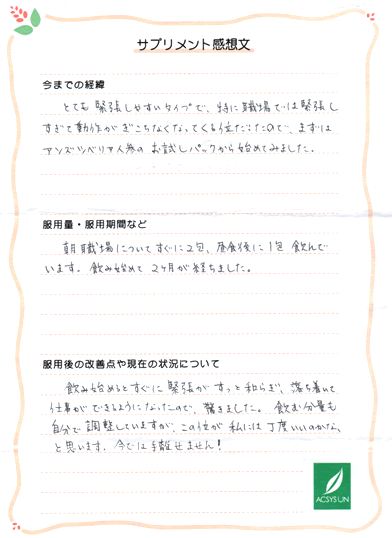 サプリメント感想文
今までの経緯
とても緊張しやすいタイプで、特に職場では緊張し
すぎて動作がぎこちなくなってくる位だったので、まずは
アンズツベリア人参のお試しパックから始めてみました。
服用量・服用期間など
朝職場についてすぐに2包、昼食後に1包飲んで
います。飲み始めて2ヶ月が経ちました。
服用後の改善点や現在の状況について
飲み始めるとすぐに緊張がすっと和らぎ、落ち着いて
仕事ができるようになったので、驚きました。飲む分量も
自分で調整していますが、この位が私には丁度いいのかな、
と思います。今では手離せません!
ACSYSUN